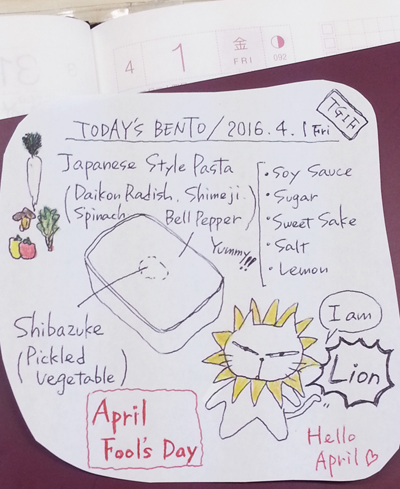 4
1
金
FRI
092
31
TGIF
TODAY'S BENTO / 2016.4.1 Fri
Japanese Style Pasta
(Daikon Radish, Shimeji,
Spinach Bell Pepper)
• Soy Sauce
• Sugar
• Sweet Sake
• Salt
• Lemon
Yummy!!
Shibazuke
(Pickled
vegetable)
I am
Lion
April
Fool's Day
Hello
April ♡